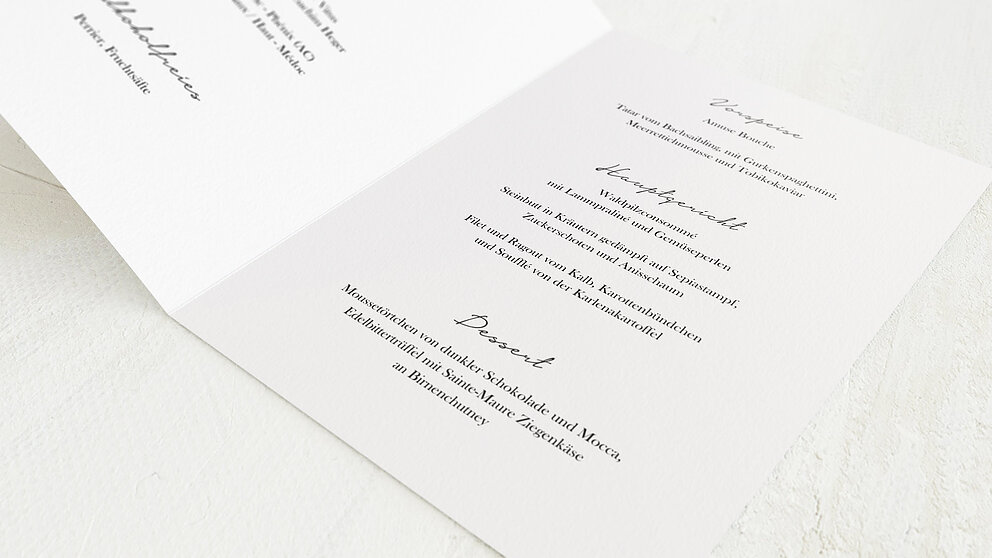 Vines
Joachim Heger
- Phénix (AC)
/ Haut - Médoc
Alkoholfreies
Perrier, Fruchtsäfte
Vorspeise
Amuse Bouche
Tatar vom Bachsaibling, mit Gurkenspaghettini,
Meerrettichmousse und Tobikokaviar
Hauptgericht
Waldpilzconsommé
mit Lammpraliné und Gemüseperlen
Steinbutt in Kräutern gedämpft auf Sepiastampf,
Zuckerschoten und Anisschaum
Filet und Ragout vom Kalb, Karottenbündchen
und Soufflé von der Karlenakartoffel
Dessert
Moussetörtchen von dunkler Schokolade und Mocca,
Edelbittertrüffel mit Sainte-Maure Ziegenkäse
an Birnenchutney